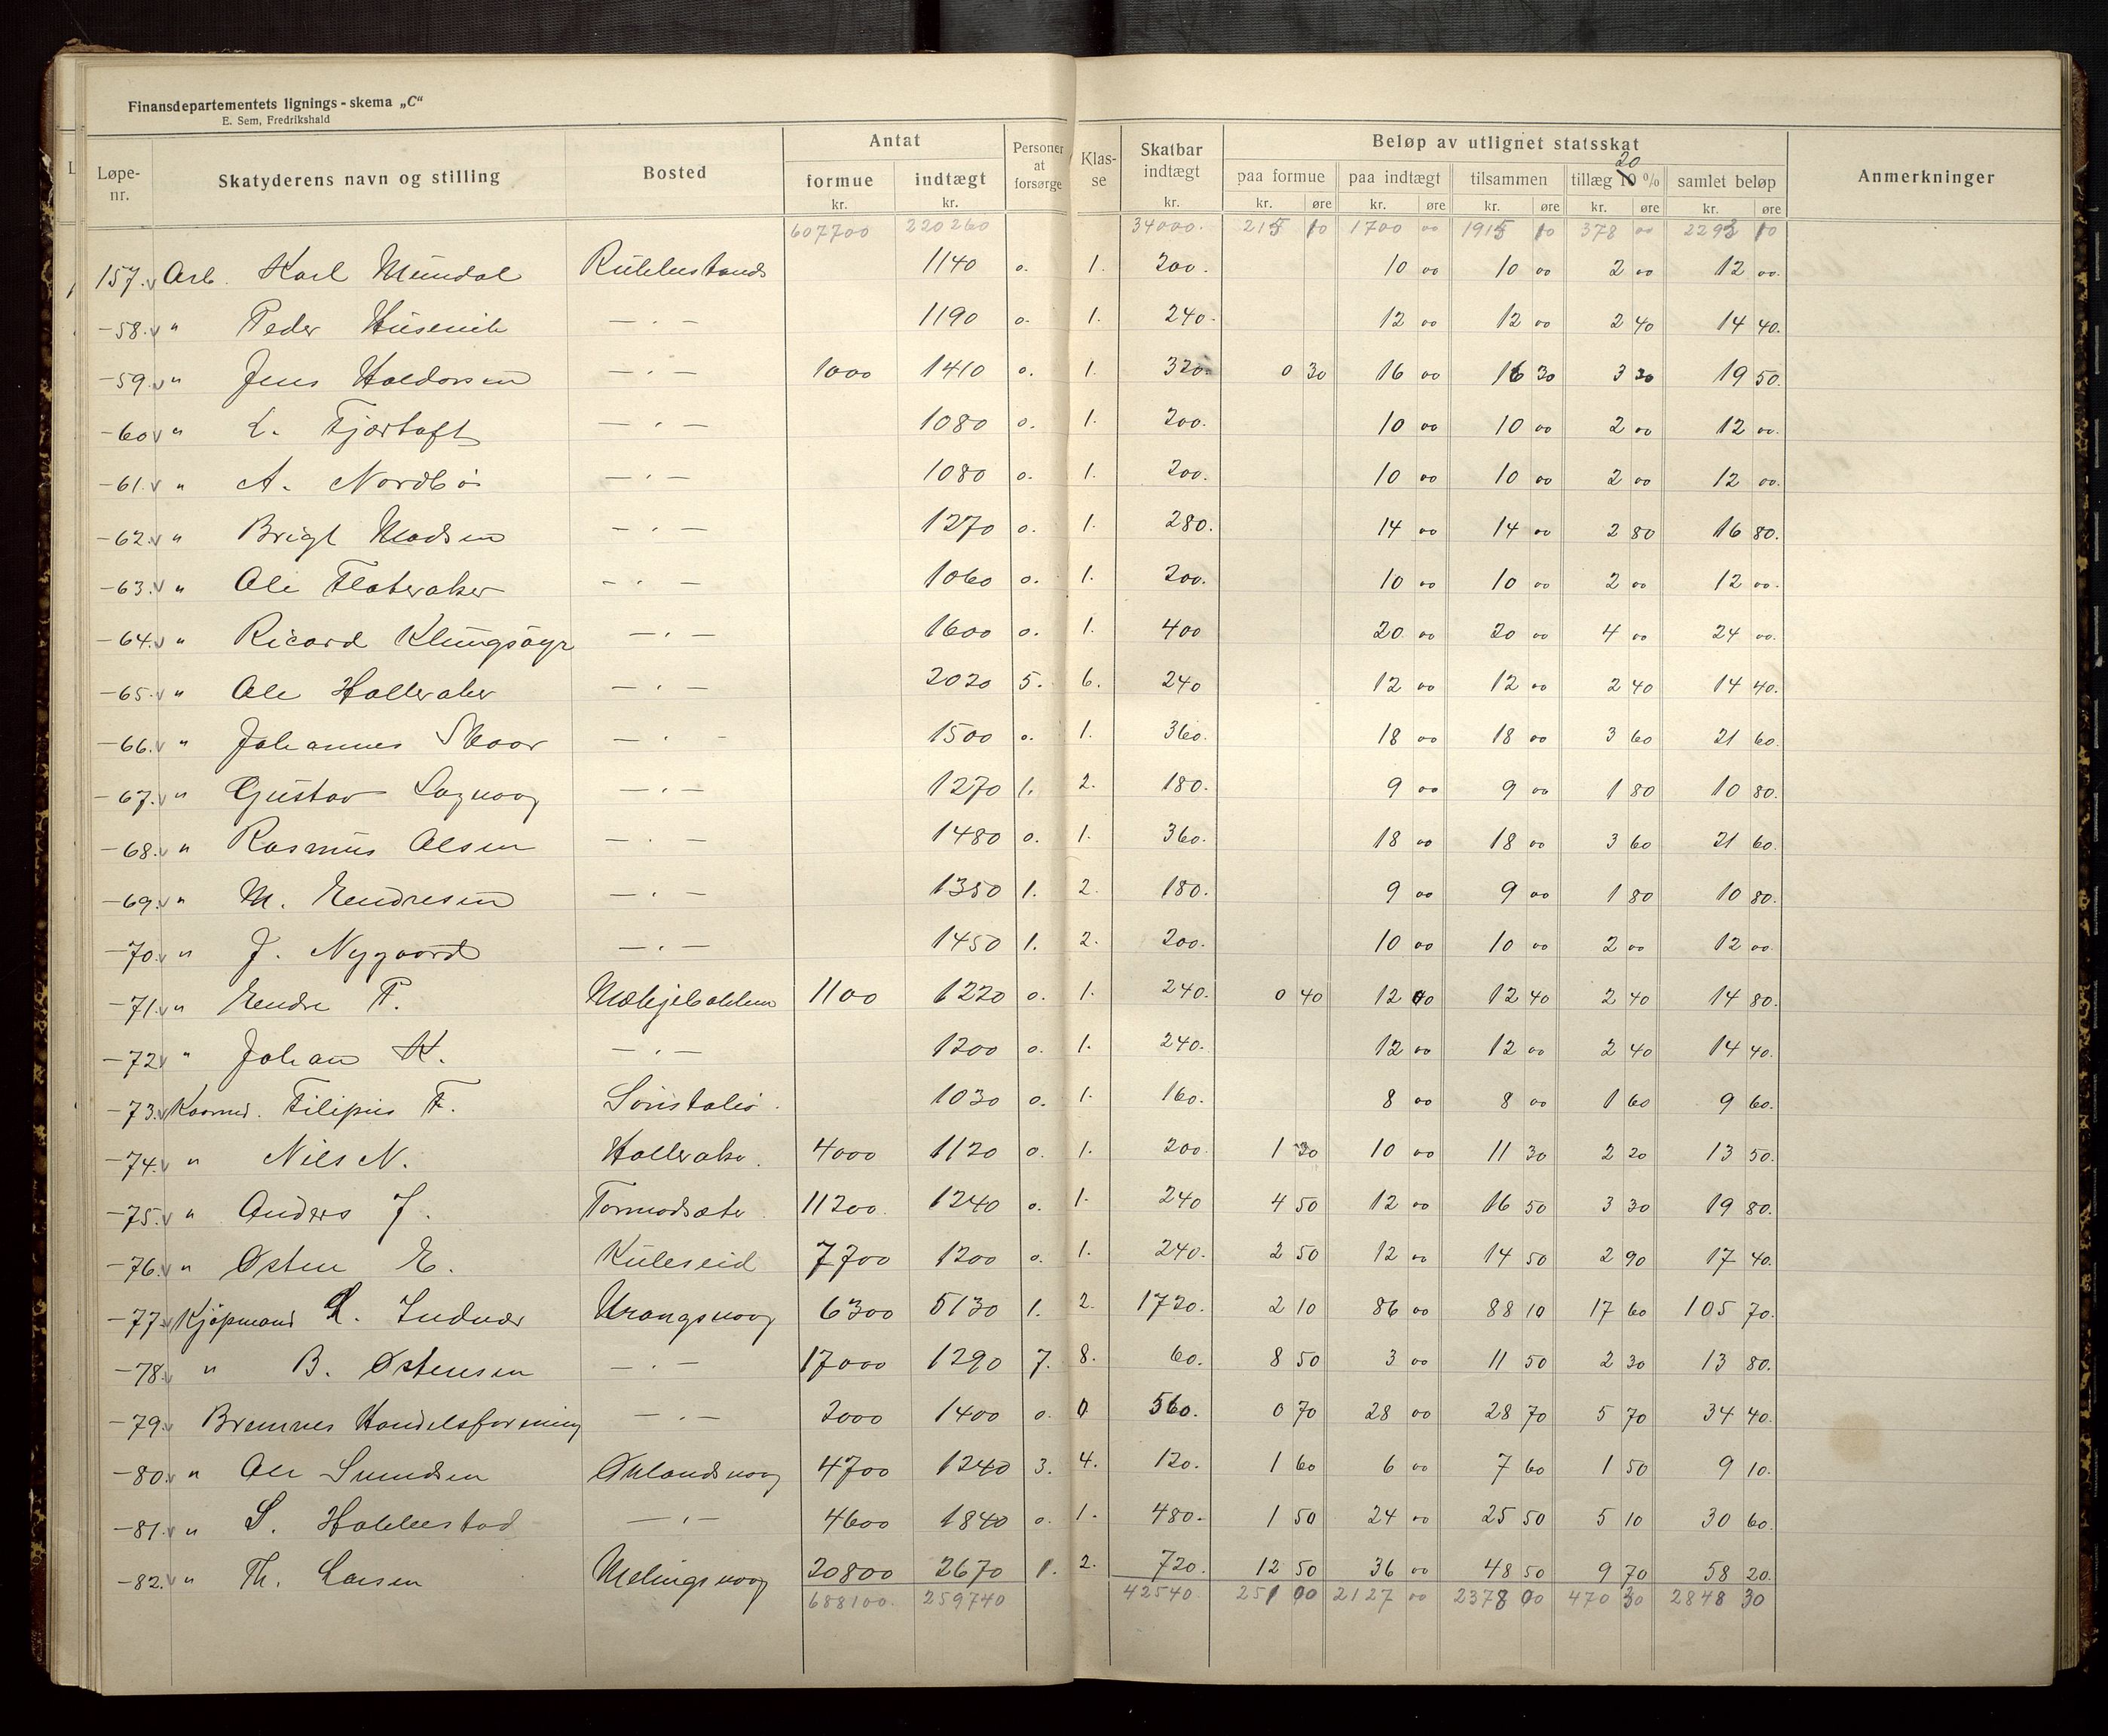 Finansdepartementets lignings-skema „C“
E. Sem, Fredrikshald
Løpe-nr. Skatyderens navn og stilling Bosted Antat formue kr. indtægt kr. Personer at forsørge Klas-se Skatbar indtægt kr. Beløp av utlignet statsskat paa formue kr. øre paa indtægt kr. øre tilsammen kr. øre tillæg 10 20 % kr. øre samlet beløp kr. øre Anmerkninger
607700 220260 34000. 215 10 1700 00 1915 10 378 00 2293 10
157. Arb. Karl Mundal Rubbestands 1140 0. 1. 200. 10 00 10 00 2 00 12 00.
-58. " Peder Husevik — " — 1190 0. 1. 240. 12 00 12 00 2 40 14 40.
-59. " Jens Haldorsen — " — 1000 1410 0. 1. 320. 0 30 16 00 16 30 3 20 19 50.
-60 " L. Fjærtoft — " — 1080 0. 1. 200. 10 00 10 00 2 00 12 00.
-61. " A. Nordbö — " — 1080 0. 1. 200. 10 00 10 00 2 00 12 00.
-62. " Brigt Madsen — " — 1270 0. 1. 280. 14 00 14 00 2 80 16 80.
-63. " Ole Flateraker — " — 1060 0. 1. 200. 10 00 10 00 2 00 12 00.
-64. " Ricard Klungsöyr — " — 1600 0. 1. 400 20 00 20 00 4 00 24 00.
-65. " Ole Halleraker — " — 2020 5. 6. 240 12 00 12 00 2 40 14 40.
-66. " Johannes Skaar — " — 1500 0. 1. 360. 18 00 18 00 3 60 21 60.
-67. " Gustav Lagvaag — " — 1270 1. 2. 180. 9 00 9 00 1 80 10 80.
-68. " Rasmus Olsen — " — 1480 0. 1. 360. 18 00 18 00 3 60 21 60.
-69. " M. Endresen — " — 1350 1. 2. 180. 9 00 9 00 1 80 10 80.
-70. " J. Nygaard — " — 1450 1. 2. 200. 10 00 10 00 2 00 12 00.
-71. " Endre P. Mækjebakken 1100 1220 0. 1. 240. 0 40 12 00 12 40 2 40 14 80.
-72 " Johan K. — " — 1200 0. 1. 240. 12 00 12 00 2 40 14 40.
-73. Filipus F. Sönstabö. 1030 0. 1. 160. 8 00 8 00 1 60 9 60.
-74. " Nils N. Halleraker. 4000 1120 0. 1. 200. 1 30 10 00 11 30 2 20 13 50.
-75. " Anders J. Tormodsæter 11200. 1240 0. 1. 240 4 50 12 00 16 50 3 30 19 80.
-76. " Østen E. Kuleseid 7700 1200 0. 1. 240. 2 50 12 00 14 50 2 90 17 40.
-77. Kjøpmand L. Indvær Urangsvaag 6300 5130 1. 2. 1720. 2 10 86 00 88 10 17 60 105 70.
-78. " B. Østensen — " — 17000 1290 7. 8. 60. 8 50 3 00 11 50 2 30 13 80.
-79. Bremnes Handelsforening — " — 2000 1400 0. 0 560. 0 70 28 00 28 70 5 70 34 40.
-80. " Ole Svendsen Øklandsvaag 4700 1240 3. 4. 120. 1 60 6 00 7 60 1 50 9 10.
-81. " S. Habbestad — " — 4600 1840 0. 1. 480. 1 50 24 00 25 50 5 10 30 60.
-82. " Th. Larsen Melingsvaag 20800 2670 1. 2. 720. 12 50 36 00 48 50 9 70 58 20.
688100. 259740 42540. 251 00 2127 00 2378 00 470 30 2848 30